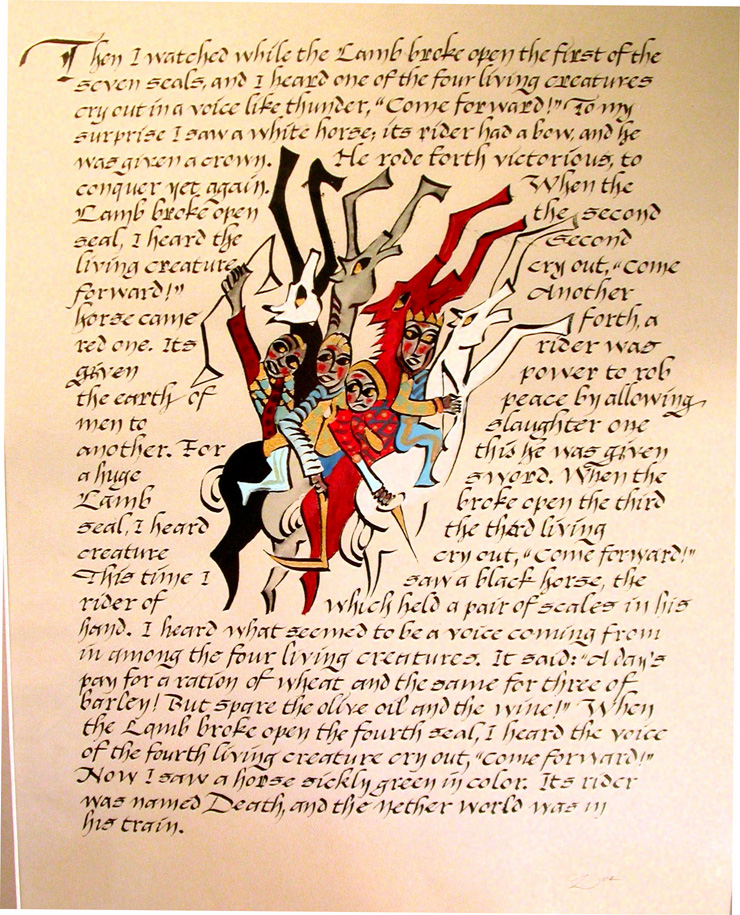 Then I watched while the Lamb broke open the first of the
seven seals, and I heard one of the four living creatures
cry out in a voice like thunder, "Come forward!" To my
surprise I saw a white horse; its rider had a bow, and he
was given a crown. He rode forth victorious, to
conquer yet again. When the
Lamb broke open the second
seal, I heard the second
living creature cry out, "Come
forward!" Another
horse came forth, a
red one. Its rider was
given power to rob
the earth of peace by allowing
men to slaughter one
another. For this he was given
a huge sword. When the
Lamb broke open the third
seal, I heard the third living
creature cry out, "Come forward!"
This time I saw a black horse, the
rider of which held a pair of scales in his
hand. I heard what seemed to be a voice coming from
in among the four living creatures. It said: "A day's
pay for a ration of wheat and the same for three of
barley! But spare the olive oil and the wine!" When
the Lamb broke open the fourth seal, I heard the voice
of the fourth living creature cry out, "Come forward!"
Now I saw a horse sickly green in color. Its rider
was named Death, and the nether world was in
his train.